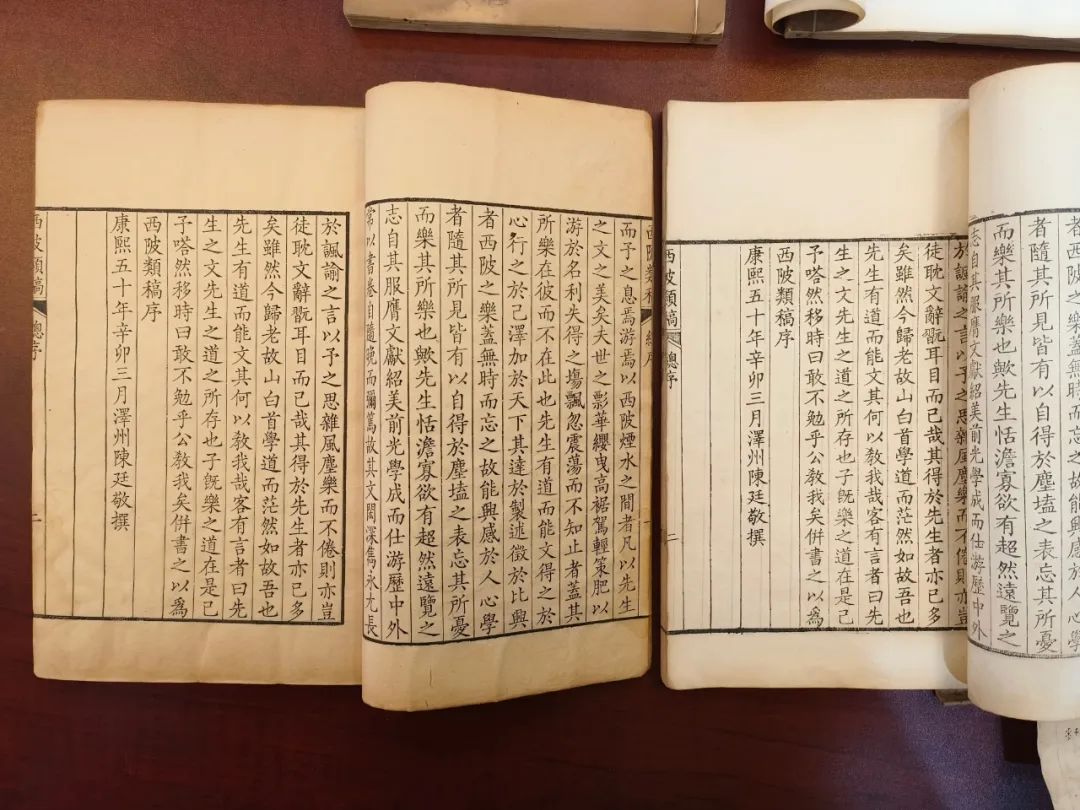 西陂類稿 總序 一
而予之息焉游焉以西陂煙水之間者凡以先生
之文之美矣夫世之彯華纓曳高裾駕輕策肥以
游於名利失得之塲飄忽震蕩而不知止者蓋其
所樂在彼而不在此也先生有道而能文得之於
心行之於己澤加於天下其達於製述徵於比興
者西陂之樂蓋無時而忘之故能興感於人心學
者隨其所見皆有以自得於塵壒之表忘其所憂
而樂其所樂也歟先生恬澹寡欲有超然遠覽之
志自其服膺文獻紹美前光學成而仕游歷中外
常以書卷自隨晚而彌篤故其文閎深雋永尤長
於諷諭之言以予之思雜風塵樂而不倦則亦豈
徒耽文辭翫耳目而已哉其得於先生者亦已多
矣雖然今歸老故山白首學道而茫然如故吾也
先生有道而能文其何以教我哉客有言者曰先
生之文先生之道之所存也子旣樂之道在是已
予嗒然移時曰敢不勉乎公教我矣併書之以爲
西陂類稿序
康熙五十年辛卯三月澤州陳廷敬撰
西陂類稿 總序 二
者西陂之樂蓋無時而忘之故能興感於人心學
者隨其所見皆有以自得於塵壒之表忘其所憂
而樂其所樂也歟先生恬澹寡欲有超然遠覽之
志自其服膺文獻紹美前光學成而仕游歷中外
於諷諭之言以予之思雜風塵樂而不倦則亦豈
徒耽文辭翫耳目而已哉其得於先生者亦已多
矣雖然今歸老故山白首學道而茫然如故吾也
先生有道而能文其何以教我哉客有言者曰先
生之文先生之道之所存也子旣樂之道在是已
予嗒然移時曰敢不勉乎公教我矣併書之以爲
西陂類稿序
康熙五十年辛卯三月澤州陳廷敬撰
西陂類稿 總序 二